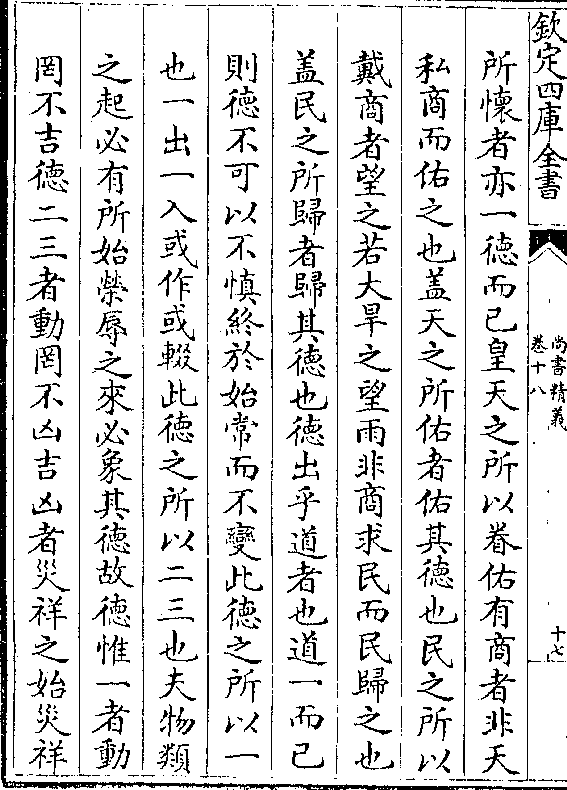 欽定四庫全書
尚書精義
卷十八
十七
所懷者亦一徳而已皇天之所以眷佑有商者非天
私商而佑之也盖天之所佑者佑其徳也民之所以
戴商者望之若大旱之望雨非商求民而民歸之也
盖民之所歸者歸其徳也徳出乎道者也道一而已
則徳不可以不慎終於始常而不變此徳之所以一
也一出一入或作或輟此徳之所以二三也夫物類
之起必有所始榮辱之來必象其徳故徳惟一者動
罔不吉徳二三者動罔不凶吉凶者災祥之始災祥